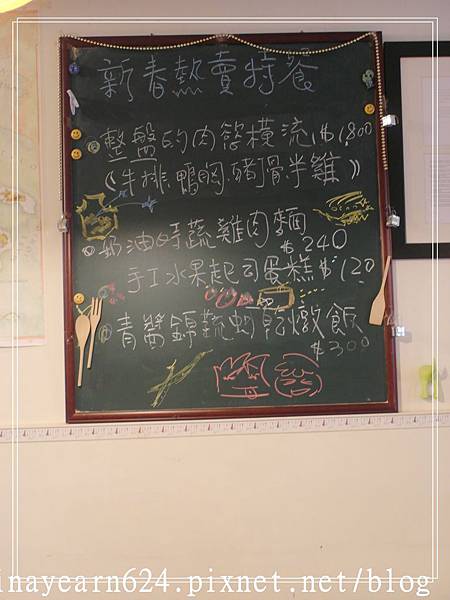 新春熱賣特餐
整盤的肉慾橫流 $1800
(牛排、鴨胸、豬腳、半雞)
奶油時蔬雞肉麵
$240
手工水果起司蛋糕 $120
青醬錦蔬蚵貝燉飯
$300
inayearn624.pixnet.net/blog